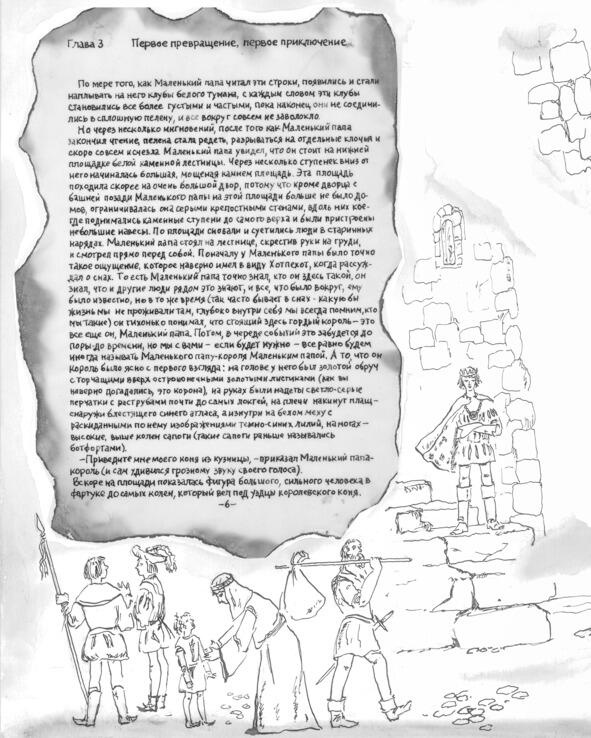 Глава 3 Первое превращение, первое приключение
По мере того, как Маленький папа читал эти строки, появились и стали
наплывать на него клубы белого тумана, с каждым словом эти клубы
становились все более густыми и частыми, пока наконец они не соедини-
лись в сплошную пелену, и все вокруг совсем не заволокло.
Но через несколько мгновений, после того как Маленький папа
закончил чтение, пелена стала редеть, разрываться на отдельные клочья и
скоро совсем исчезла. Маленький папа увидел, что он стоит на нижней
площадке белой каменной лестницы. Через несколько ступенек вниз от
него начиналась большая, мощеная камнем площадь. Эта площадь
походила скорее на очень большой двор, потому что кроме дворца с
башней позади Маленького папы на этой площади больше не было до-
мов, ограничивалась она серыми крепостными стенами, вдоль них кое-
где поднимались каменные ступени до самого верха и были пристроены
небольшие навесы. По площади сновали и суетились люди в старинных
нарядах. Маленький папа стоял на лестнице, скрестив руки на груди,
и смотрел прямо перед собой. Поначалу у Маленького папы было точно
такое ощущение, которое наверно имел в виду Хотпехот, когда рассуж-
дал о снах. То есть Маленький папа точно знал, кто он здесь такой, он
знал, что и другие люди рядом это знают, и все, что было вокруг, ему
было известно, но в то же время (так часто бывает в снах - какую бы
жизнь мы не проживали там, глубоко внутри себя мы всегда помним, кто
мы такие) он тихонько понимал, что стоящий здесь гордый король – это
все еще он, Маленький папа. Потом, в череде событий это забудется до
поры до времени, но мы с вами – если будет нужно – все равно будем
иногда называть Маленького папу-короля Маленьким папой. А то, что он
король было ясно с первого взгляда: на голове у него был золотой обруч
с торчащими вверх остроконечными золотыми листиками (как вы
наверно догадались, это корона), на руках были надеты светло-серые
перчатки с раструбами почти до самых локтей, на плечи накинут плащ -
снаружи блестящего синего атласа, а изнутри на белом меху с
раскиданными по нему изображениями темно-синих лилий, на ногах –
высокие, выше колен сапоги (такие сапоги раньше назывались
ботфортами).
–Приведите мне моего коня из кузницы, –приказал Маленький папа-
король (и сам удивился грозному звуку своего голоса).
Вскоре на площади показалась фигура большого, сильного человека в
фартуке до самых колен, который вел под уздцы королевского коня.
–6–